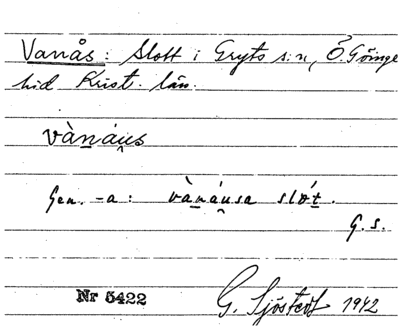 Vanås: Slott i Gryts s:n, Ö. Göinge
hid Krist. län.
vàna̱áu̯s
Gen. -a: vàṉáu̯sa slót̲.
G. s.
Nr 5422
G. Sjöstedt 1942